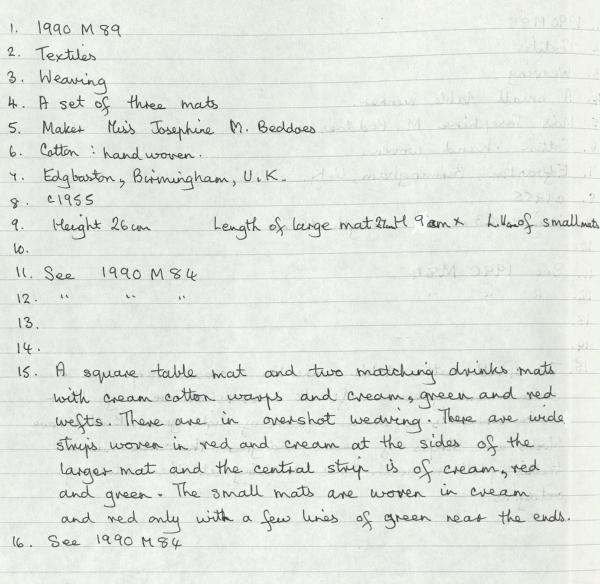 1. 1990 M 89
2. Textiles
3. Weaving
4. A set of three mats
5. Maker Miss Josephine M. Beddoes
6. Cotton : hand woven.
7. Edgbaston, Birmingham, U.K.
8. c1955
9. Height 26cm Length of large mat 27cm H 9cm x L. of small mats
10.
11. See 1990 M 84
12. " " "
13.
14.
15. A square table mat and two matching drinks mats
with cream cotton warps and cream, green and red
wefts. There are in overshot weaving. There are wide
strips woven in red and cream at the sides of the
larger mat and the central strip is of cream, red
and green. The small mats are woven in cream
and red only with a few lines of green near the ends.
16. See 1990 M 84